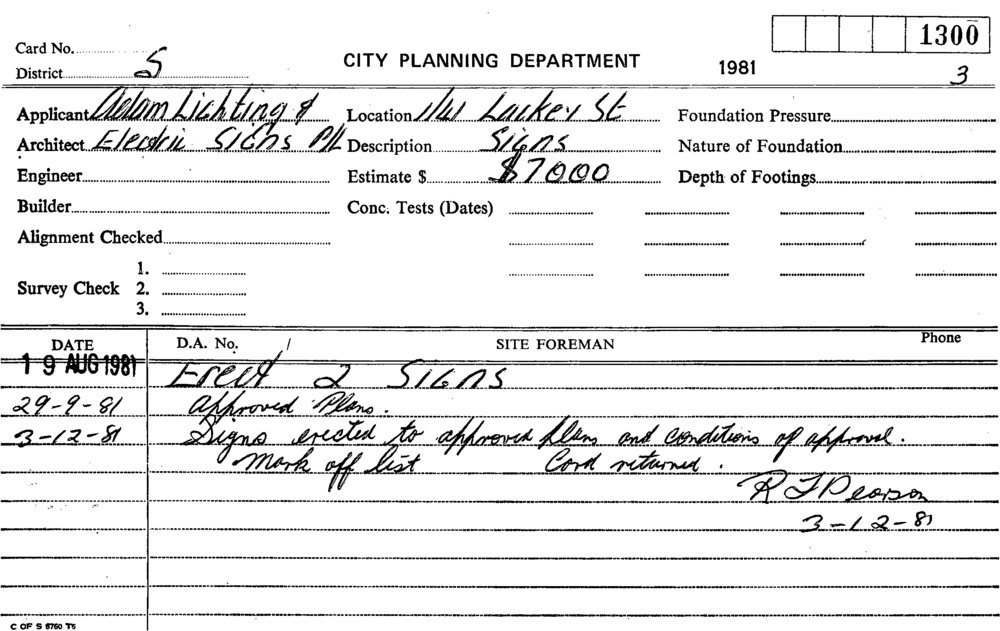 1300
Card No.
District S
CITY PLANNING DEPARTMENT
1981
3
Applicant Adam Lichting &
Location 1/41 Lackey St
Foundation Pressure
Architect Electric Signs P/L
Description Signs
Nature of Foundation
Engineer
Estimate $ $7000
Depth of Footings
Builder
Conc. Tests (Dates)
Alignment Checked
1.
Survey Check 2.
3.
DATE
D.A. No. /
SITE FOREMAN
Phone
19 AUG 1981
Erect 2 Signs
29-9-81
Approved Plans.
3-12-81
Signs erected to approved plans and conditions of approval.
Mark off list Card returned.
R J Pearson
3-12-81
C OF S 6750 T5